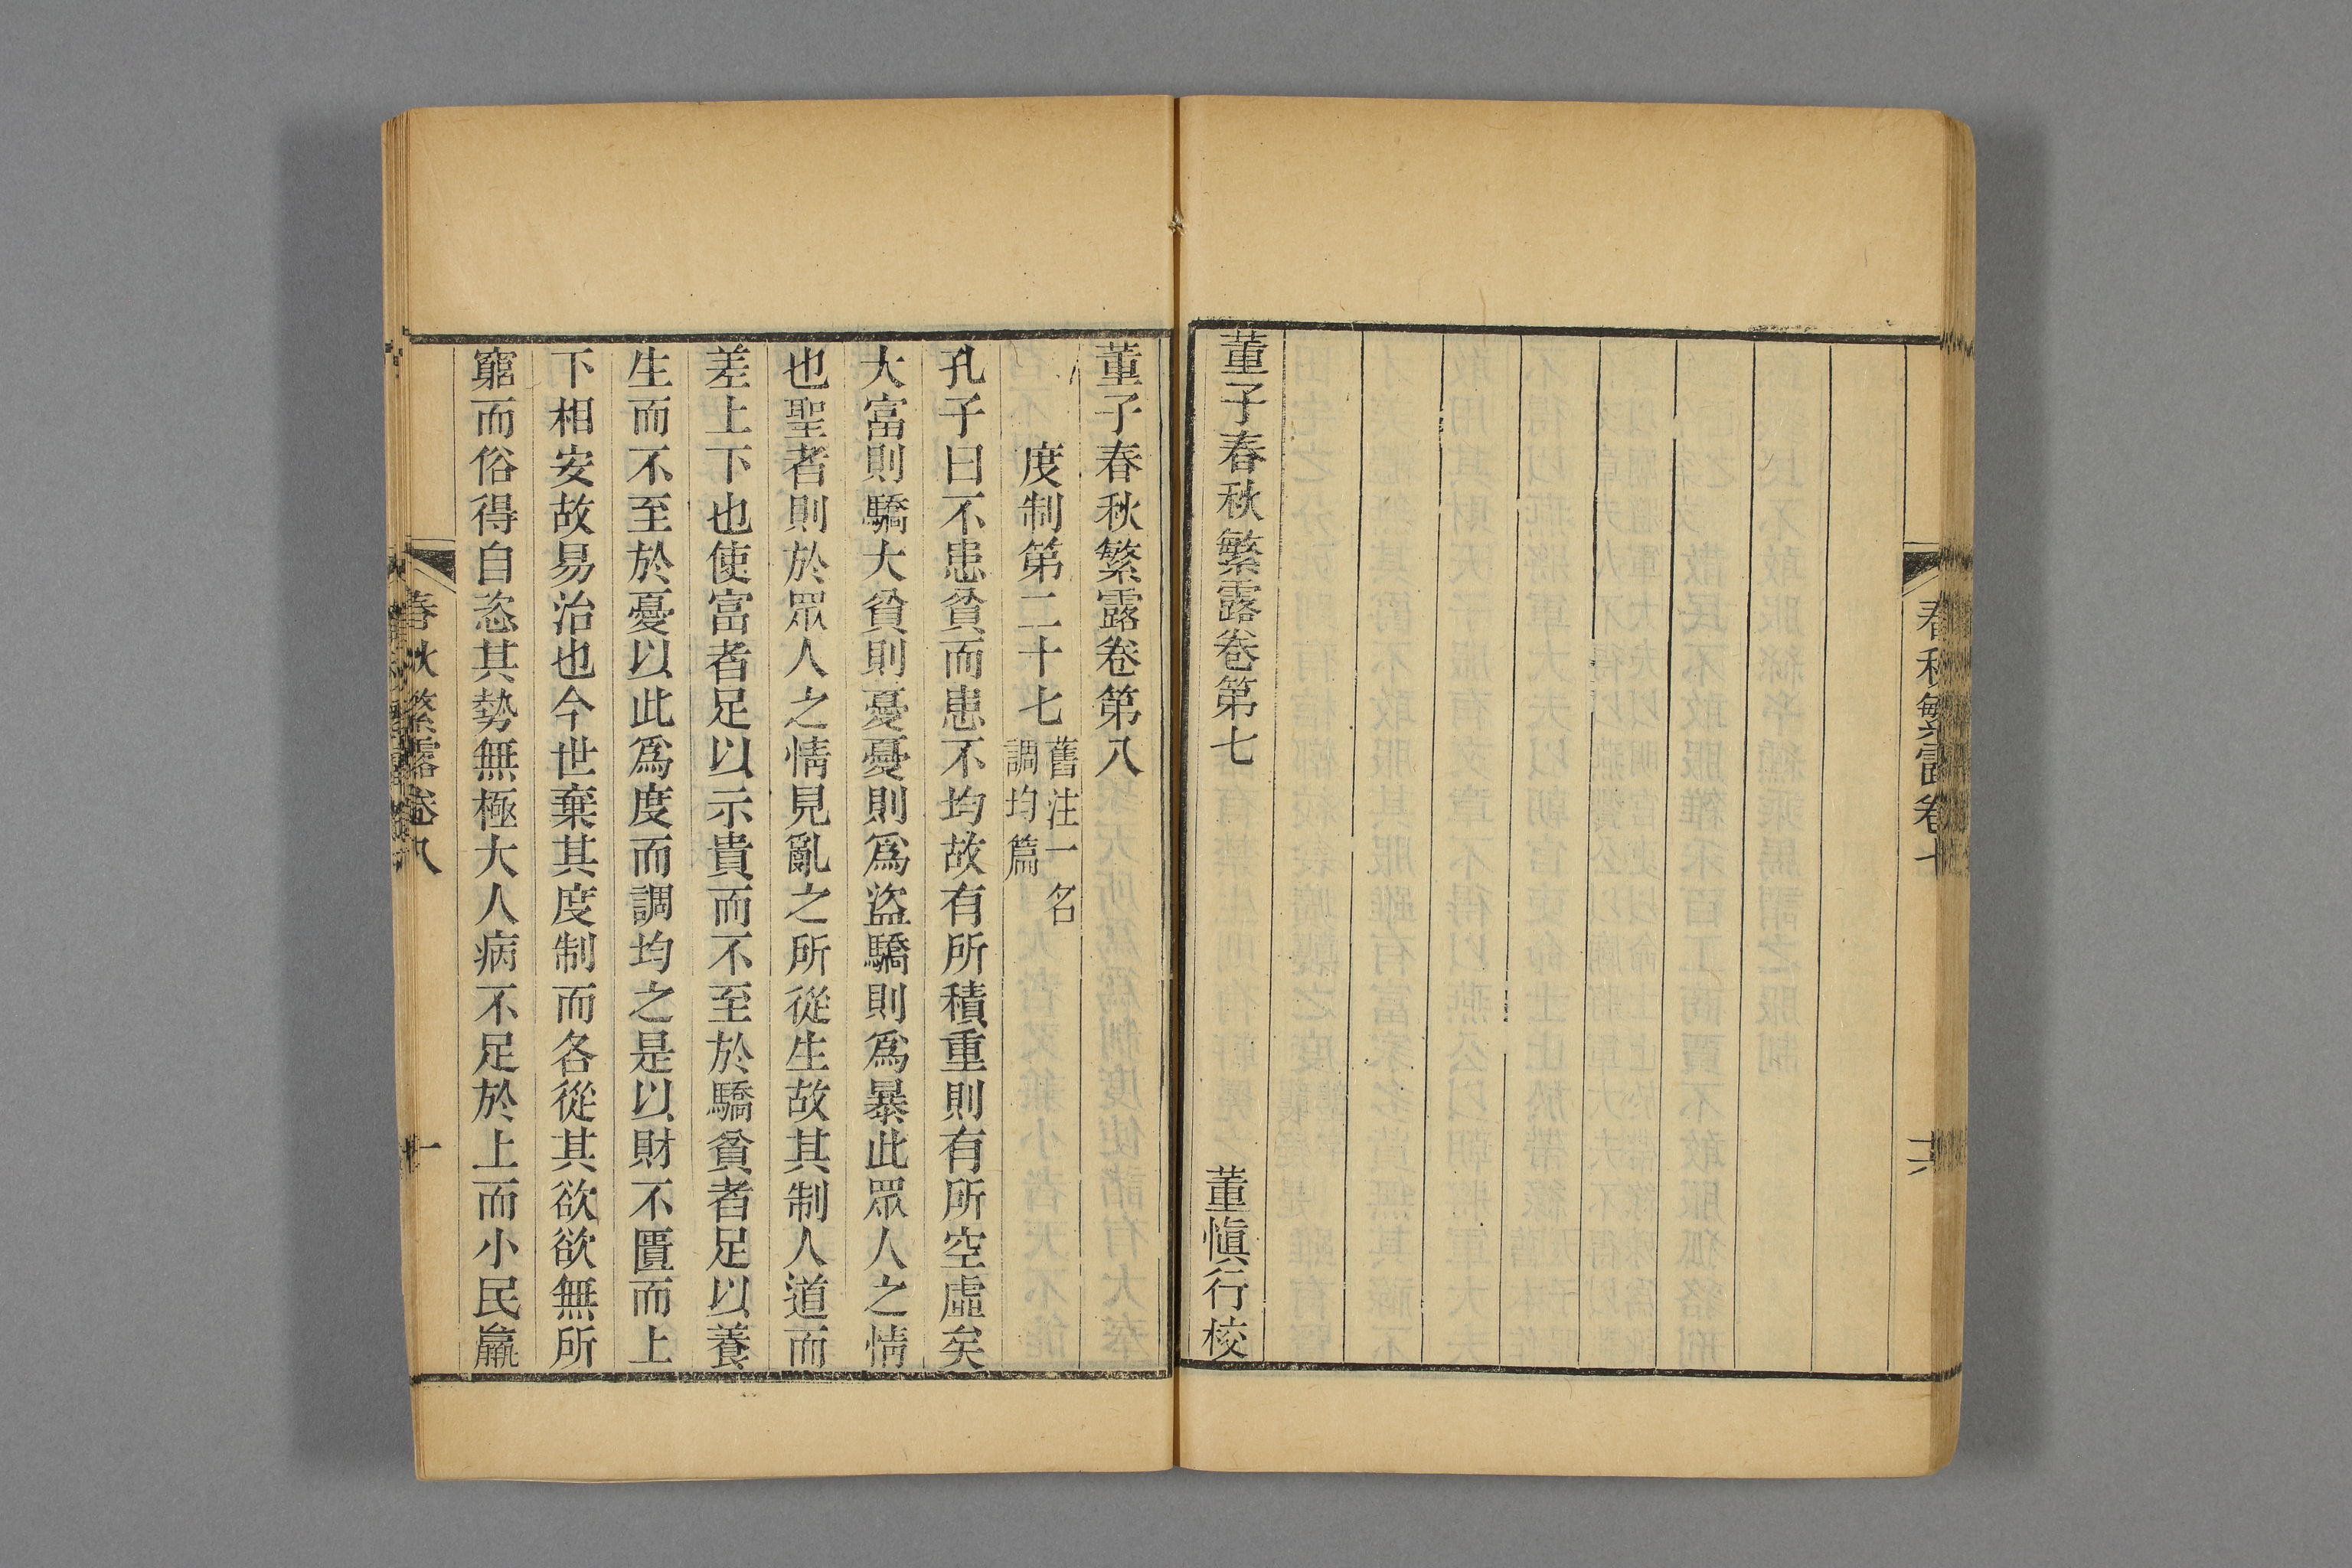 春秋繁露卷七
十六
董子春秋繁露卷第七
董愼行校
董子春秋繁露卷第八
度制第二十七
舊注一名
調均篇
孔子曰不患貧而患不均故有所積重則有所空虛矣
大富則驕大貧則憂憂則爲盜驕則爲暴此眾人之情
也聖者則於眾人之情見亂之所從生故其制人道而
差上下也使富者足以示貴而不至於驕貧者足以養
生而不至於憂以此爲度而調均之是以財不匱而上
下相安故易治也今世棄其度制而各從其欲欲無所
窮而俗得自恣其勢無極大人病不足於上而小民羸
春秋繁露卷八
一